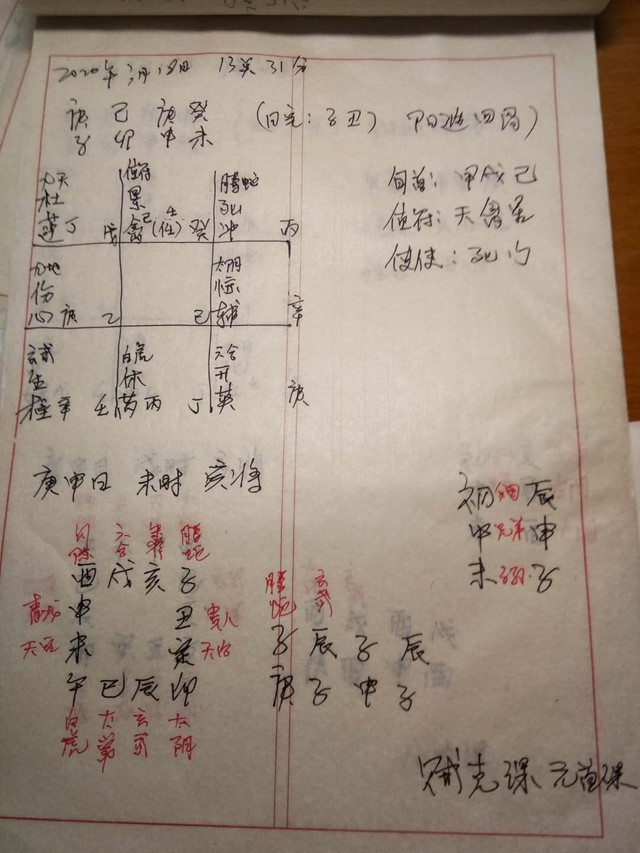 2020年3月18日 13点31分
庚 己 庚 癸 (日空:子丑) 阳遁四局
子 卯 申 未
旬首: 甲戌己
值符: 天禽星
值使: 死门
九天 值符 腾蛇
杜 景 死
蓬丁 戊 禽己(任) 癸 冲 丙
九地 太阴
伤 惊
心庚 乙 己 辅 辛
玄武 白虎 六合
生 休 开
柱辛 壬 芮丙 丁 英 庚
庚申日 未时 亥将
初 辰
中 兄弟 申
末 子
六合 腾蛇
酉 戌 亥 子
申 丑 贵人
未 寅
午 巳 辰 卯
白虎 太常 玄武 太阴
腾蛇 玄武
子 辰 子 辰
庚 子 申 子
贼克课 元首课